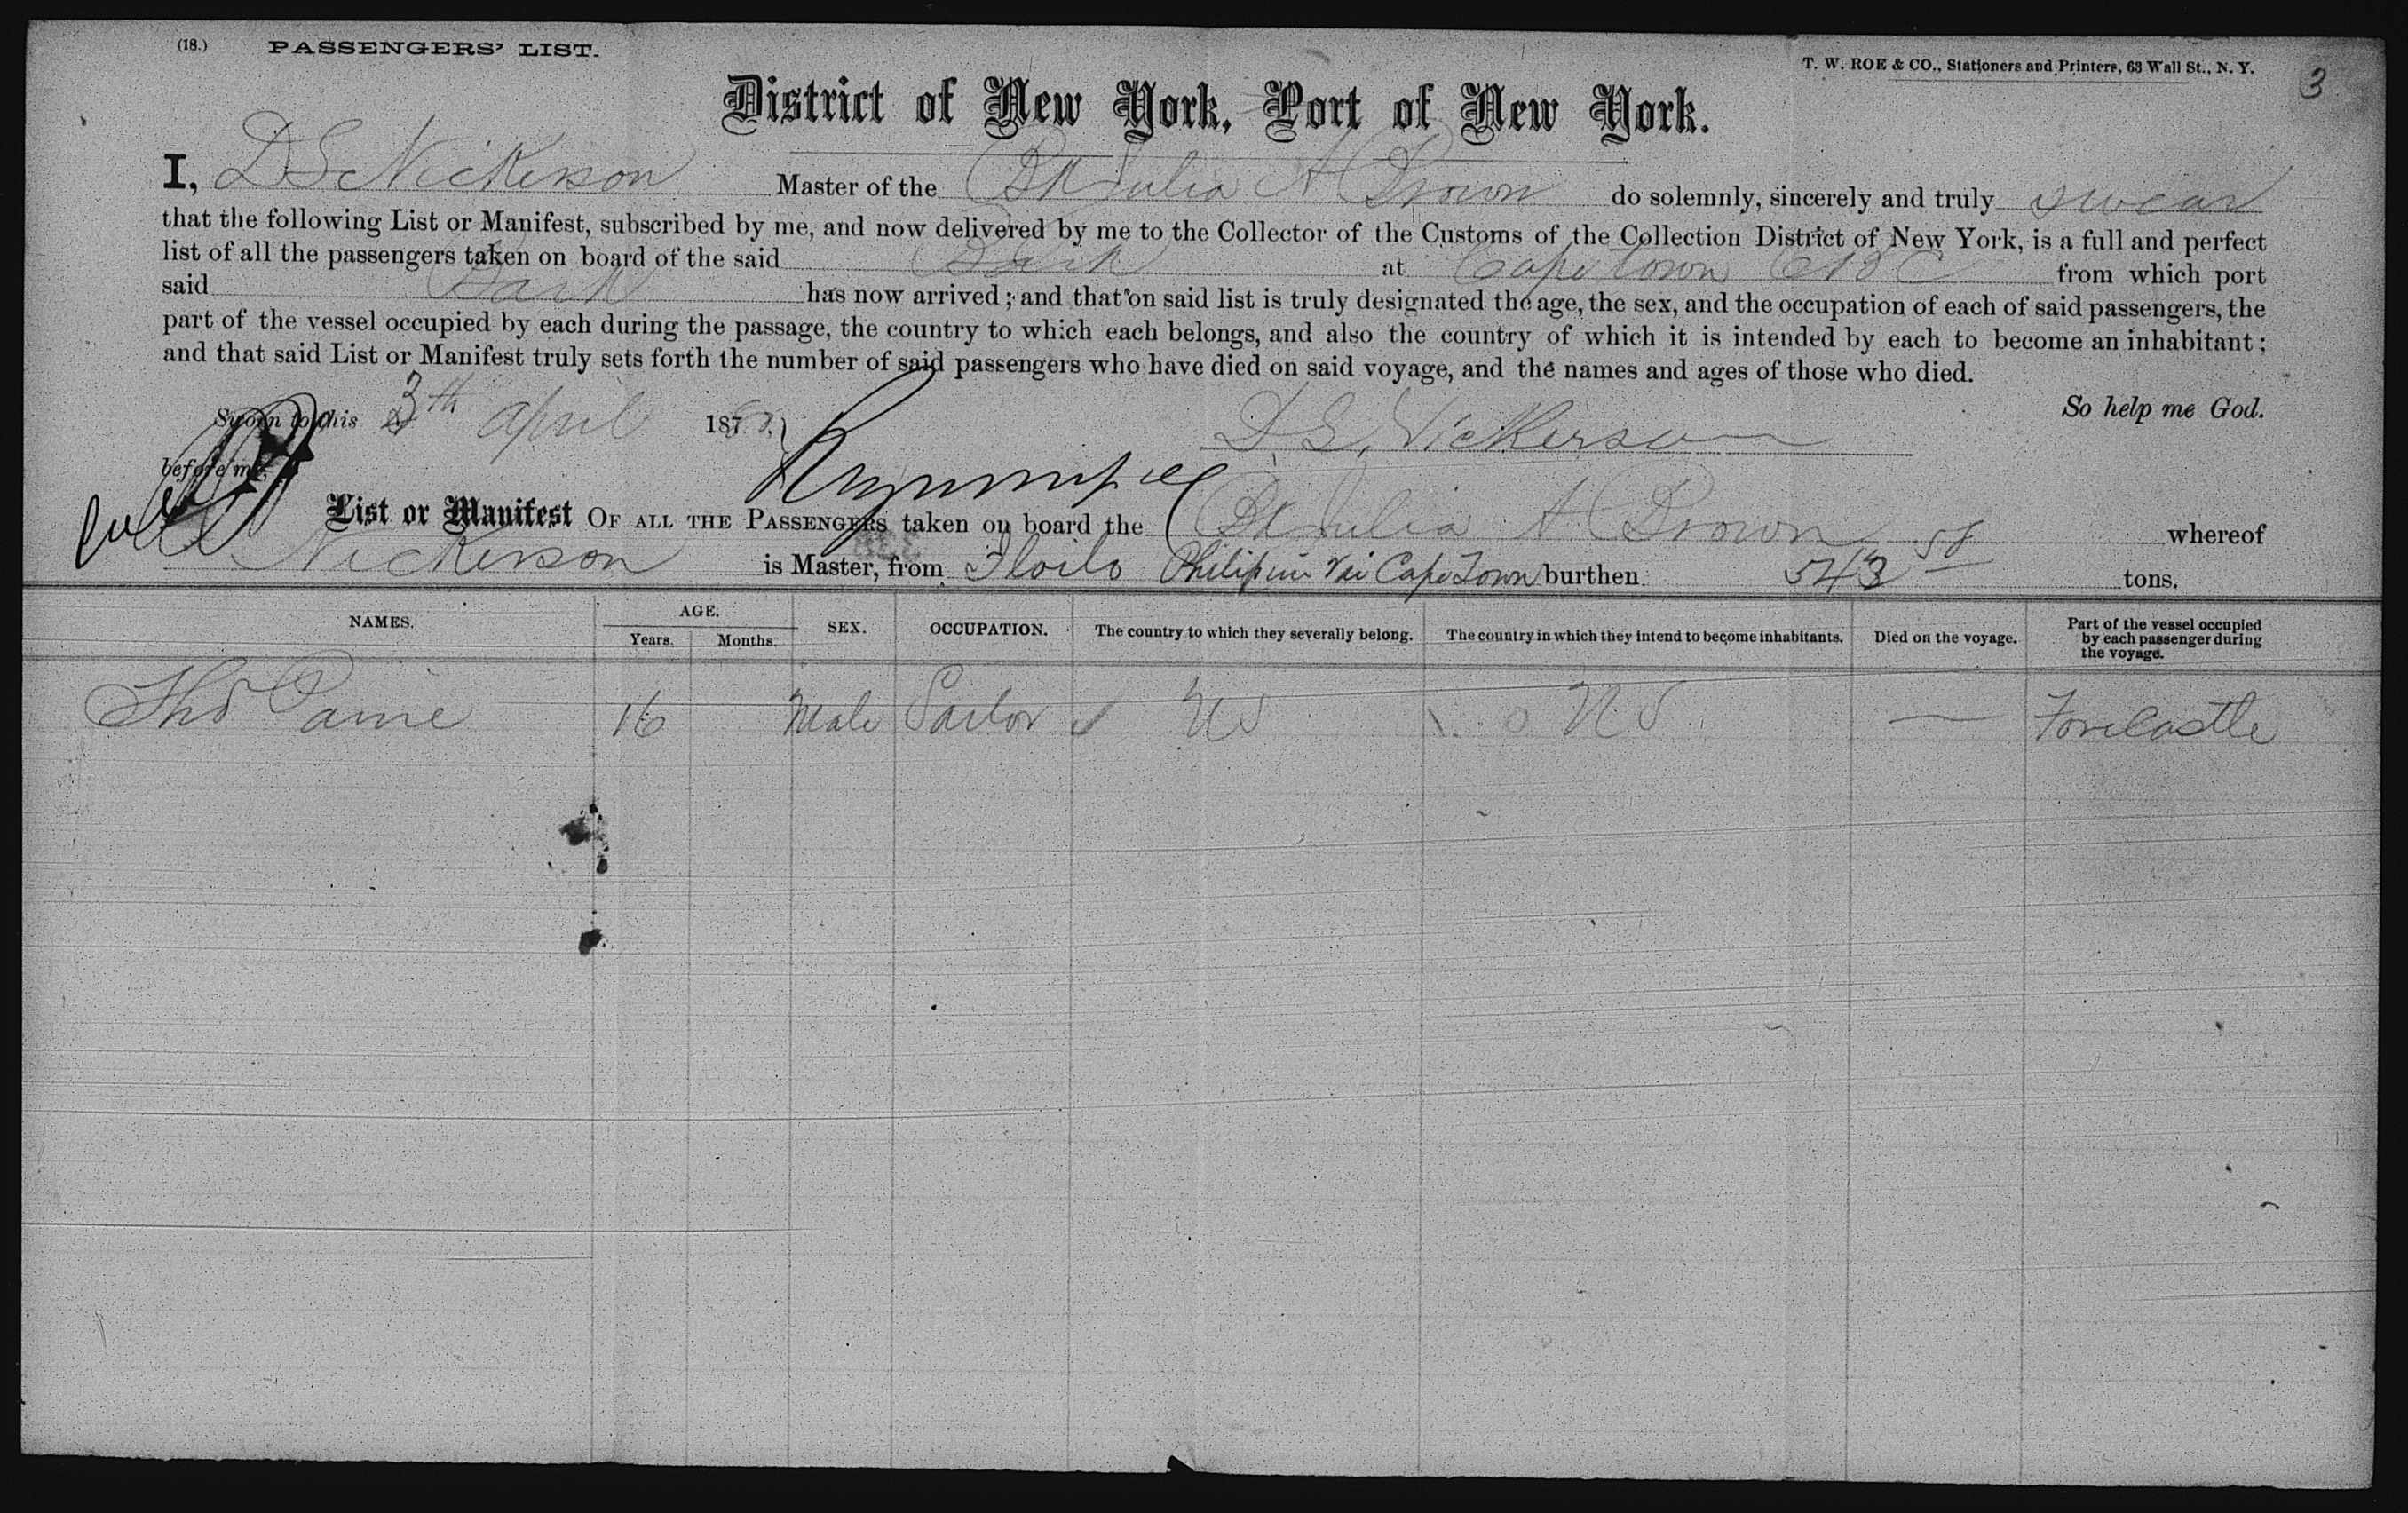 (18.) PASSENGERS' LIST.
T. W. ROE & CO., Stationers and Printers, 63 Wall St., N. Y.
3
District of New York, Port of New York.
I, D S Nickerson Master of the Bk Julia A Brown do solemnly, sincerely and truly swear
that the following List or Manifest, subscribed by me, and now delivered by me to the Collector of the Customs of the Collection District of New York, is a full and perfect
list of all the passengers taken on board of the said Bark at Cape Town from which port
said Bark has now arrived; and that on said list is truly designated the age, the sex, and the occupation of each of said passengers, the
part of the vessel occupied by each during the passage, the country to which each belongs, and also the country of which it is intended by each to become an inhabitant;
and that said List or Manifest truly sets forth the number of said passengers who have died on said voyage, and the names and ages of those who died.
So help me God.
Sworn to this 3th April 187
D. S. Nickerson
before me
List or Manifest OF ALL THE PASSENGERS taken on board the Bk Julia A Brown whereof
Nickerson is Master, from Iloilo Philipin Vai Cape Town burthen 543 58 tons.
NAMES. AGE. SEX. OCCUPATION. The country to which they severally belong. The country in which they intend to become inhabitants. Died on the voyage. Part of the vessel occupied by each passenger during the voyage.
Years. Months.
Thos Paine 16 Male Sailor US US — Forecastle